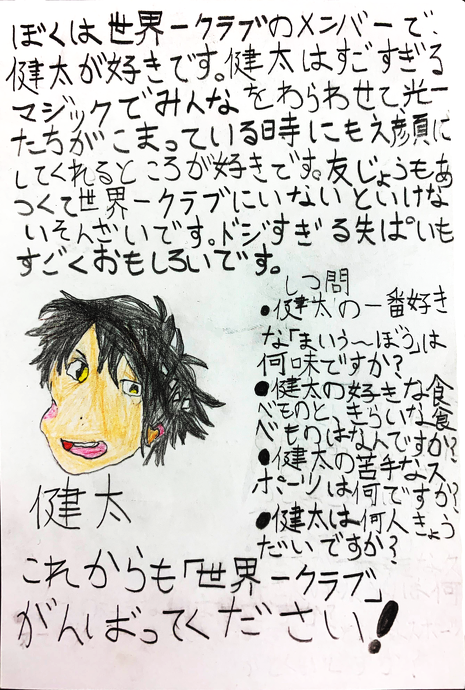 ぼくは世界一クラブのメンバーで、
健太が好きです。健太はすごすぎる
マジックでみんなをわらわせて、光一
たちがこまっている時にもえ顔に
してくれるところが好きです。友じょうもあ
つくて世界一クラブにいないといけな
いそんざいです。ドジすぎる失ぱいも
すごくおもしろいです。
しつ問
●健太の一番好き
な「まいう〜ぼう」は
何味ですか?
●健太の好きな食
べものと、きらいな食
べものはなんですか?
●健太の苦手なス
ポーツは何ですか?
●健太は何人きょう
だいですか?
健太
これからも「世界一クラブ」
がんばってください!